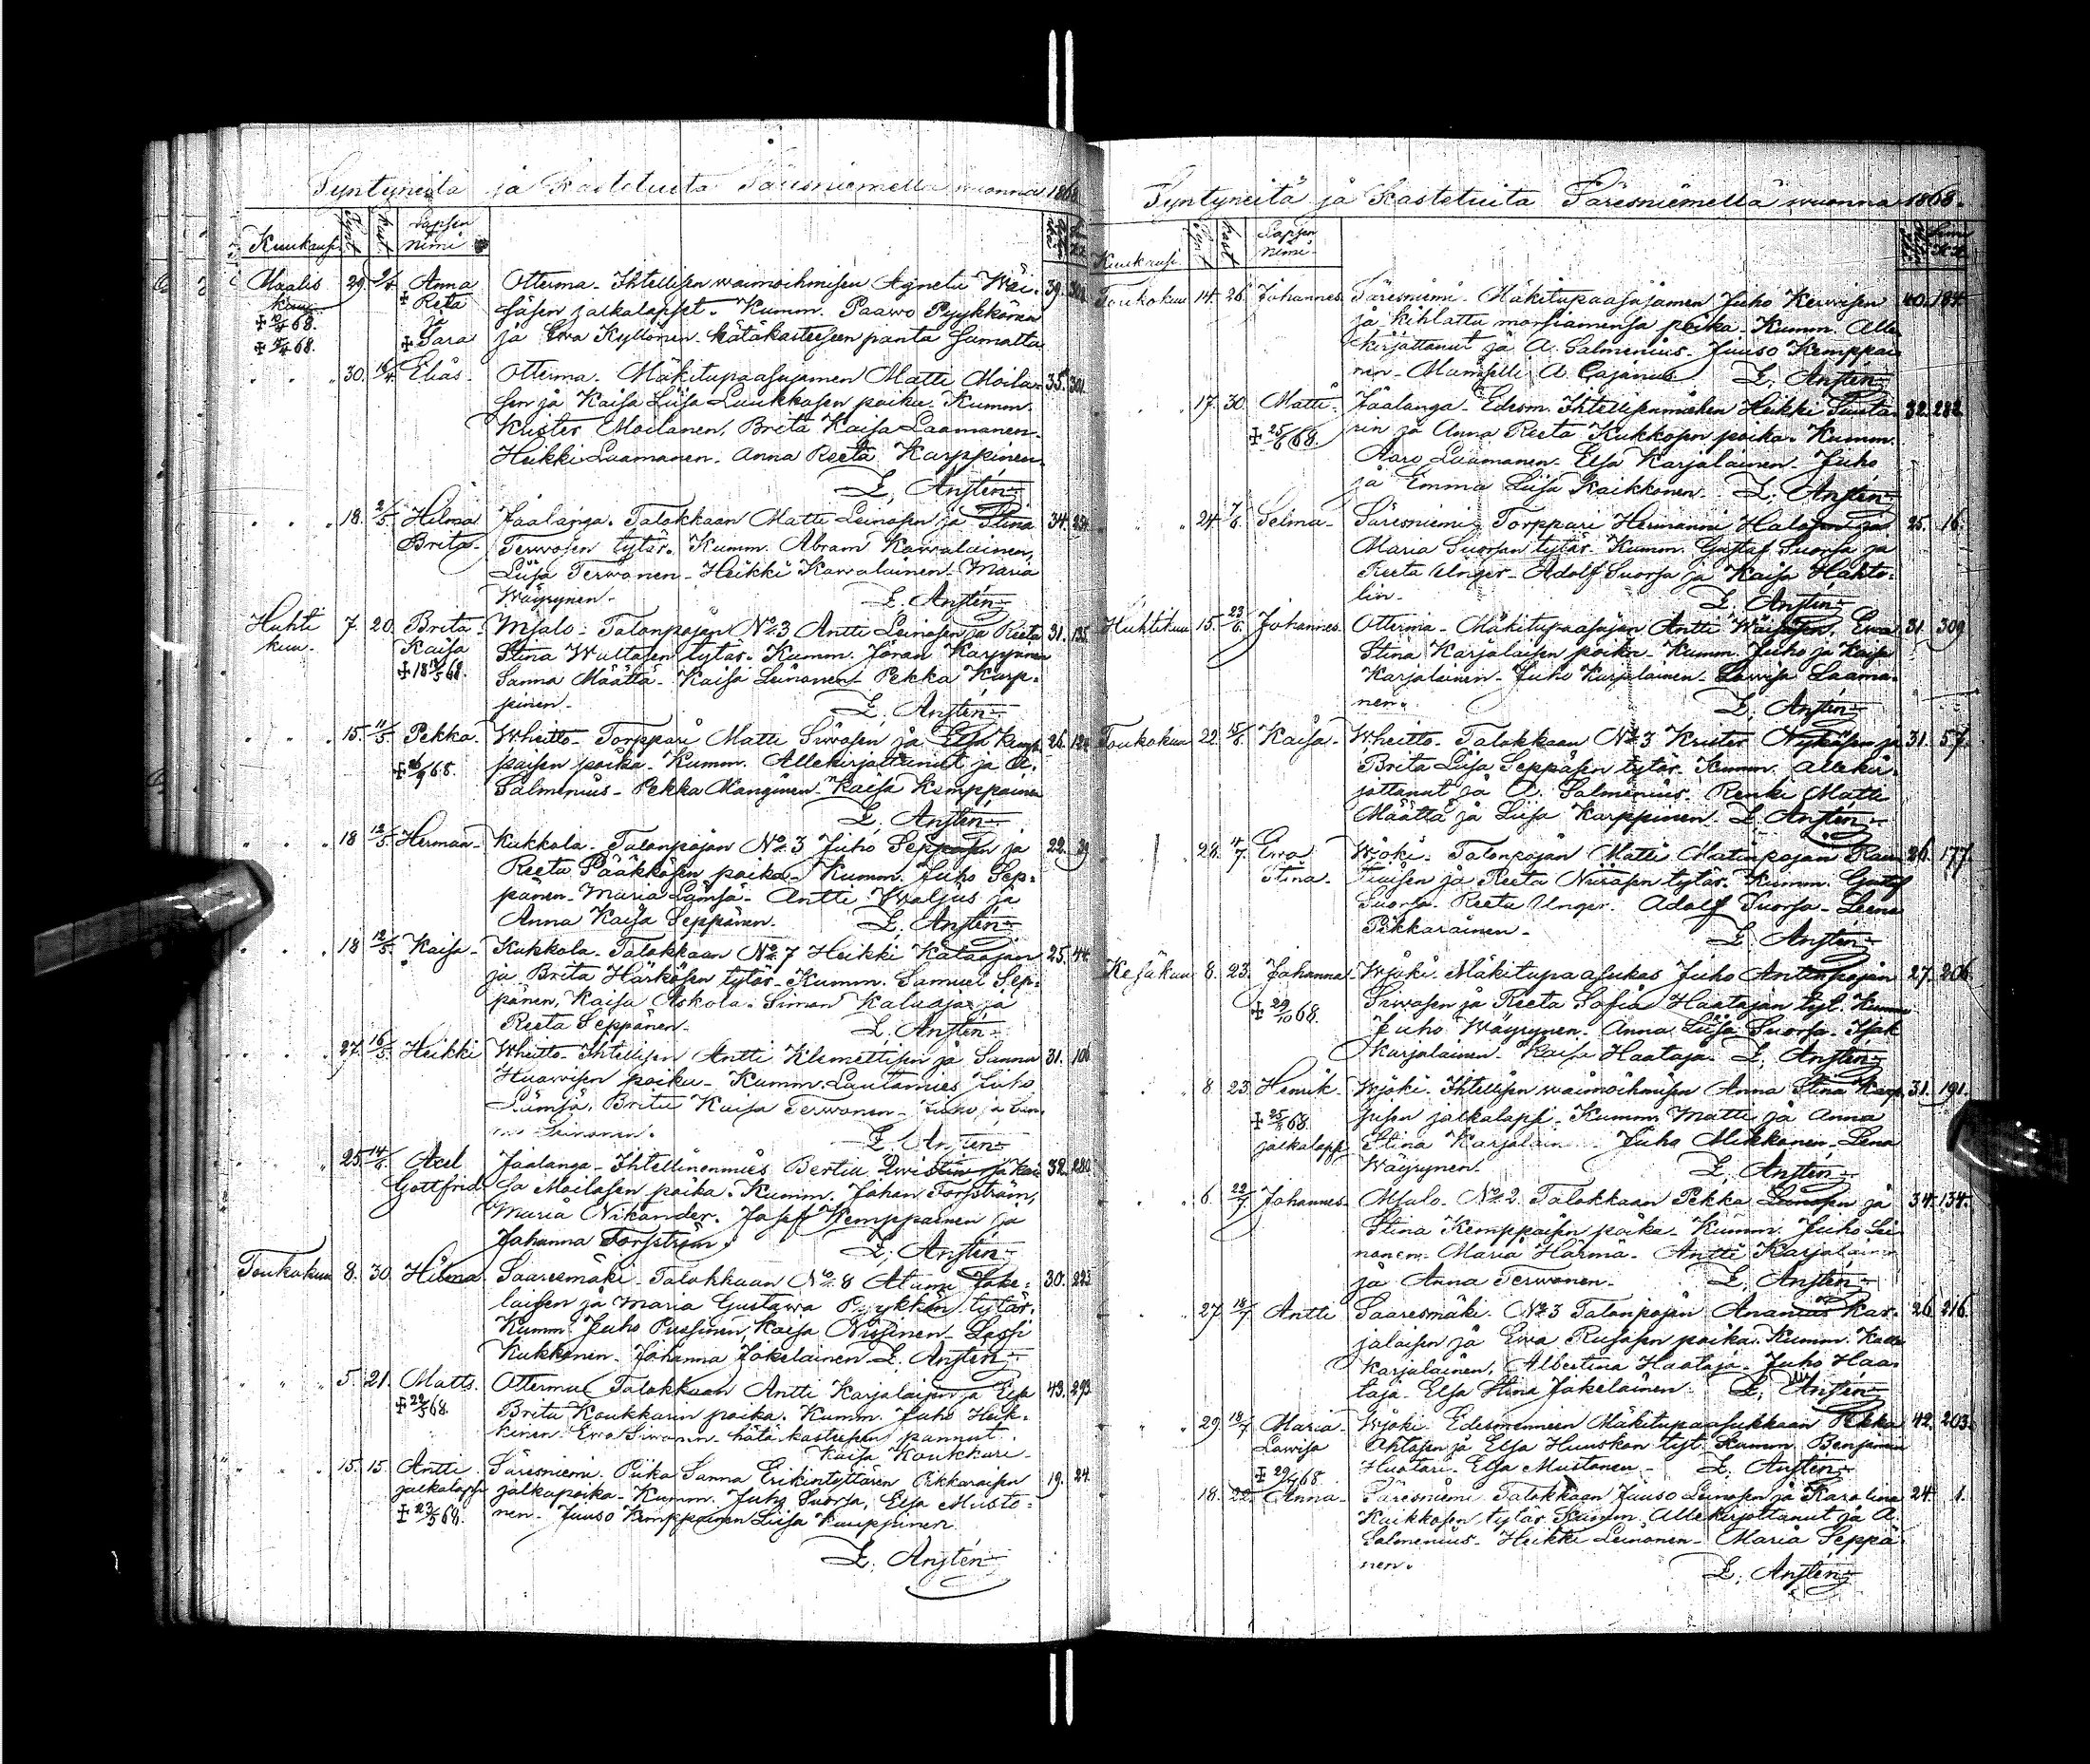 Syntyneitä ja Kastetuita Säresniemellä wuonna 1868
Kuukausi Synt. Kast. Lapsen nimi
Maalis 29. 2/4 Anna Otterma. Ihtellisen waimoihmisen Agneta Wäi- 39. 302
kuu + Reta säsen jalkalapset. Kumm. Paawo Pyykkönen
+ 10/4 68. ja
+ 5/4 68. + Sara ja Ewa Kyllönen. hätäkasteeseen panta Sumatta
30. 14/4 Elias. Otterma. Mäkitupaasujamen Matti Moila- 35. 301.
sen ja Kaisa Liisa Luukkosen poika. Kumm.
Krister Moilanen, Brita Kaisa Laamanen.
Heikki Laamanen. Anna Reeta Karppinen.
L. Ansten
18. 2/5 Hilma Jaalanga. Talokkaan Matti Leinosen ja Stina 34.
Brita. Terwosen tytär. Kumm. Abram Kawalainen,
Liisa Terwonen - Heikki Kawalainen. Maria
Wäyrynen. L. Ansten
Huhti 7. 20. Brita Misalo - Talonpojan No 3 Antti Leinosen ja Reeta 31. 135
kuu. Kaisa Stina Wuttasen tytär. Kumm. Joran Karppinen
+ 18/5 68. Sanna Määttä - Kaisa Leinonen - Pekka Karp-
pinen. L. Ansten
15. 11/5 Pekka. Wheitto - Torppari Matti Siwosen ja Elsa Kemp- 26. 122
paisen poika. Kumm. Allekirjottanut ja A.
Salmenius - Pekka Manginen - Kaisa Kemppainen
L. Ansten
18 12/5 Herman Kukkola. Talonpojan No 3 Juho Seppäsen ja 22. 29
Reeta Pääkkösen poika - Kumm. Juho Sep-
pänen - Maria Lämsä - Antti Waljus ja
Anna Kaisa Seppänen. L. Ansten
18 12/5 Kaisa Kukkola. Talokkaan No 7 Heikki Kataajan 25. 44.
ja Brita Härkösen tytär - Kumm. Samuel Sep-
pänen, Kaisa Askola. Simon Kataaja ja
Reeta Seppänen. L. Ansten
27. 16/5 Heikki Wheitto - Ihtellisen Antti Klemettisen ja Sanna 31.
Huowisen poika - Kumm. Lautamies Juho
Lämsä. Brita Kaisa Terwonen - Juho ja
Leinonen. L. Ansten
25. 14/5 Axel Jaalanga - Ihtellinenmies Bertil Qwistin ja Kai- 32. 280
Gottfrid sa Moilasen poika. Kumm. Johan Forsström,
Maria Nikander. Josef Kemppainen ja
Johanna Forsström. L. Ansten
Toukokuu 8. 30. Hilma. Saaresmäki - Talokkaan No 8 Atami Joke- 30. 223
laisen ja Maria Gustawa Pyykkön tytär.
Kumm. Juho Pussinen, Kaisa Nissinen - Lassi
Kukkonen - Johanna Jokelainen L. Ansten
5. 21. Matts. Otterma Talokkaan Antti Karjalaisen ja Elsa 43. 293
+ 22/5 68. Brita Koukkarin poika. Kumm. Juho Heik-
kinen. Ewa Siwonen - hätäkasteesen pannut
Kaisa Koukkari
15. 15. Antti Säresniemi. Piika Sanna Erikintyttären Pikkaraisen 19. 24.
jalkalapsi jalkapoika - Kumm. Juho Suorsa, Elsa Musto-
+ 23/5 68. nen - Juuso Kemppainen Liisa Kauppinen
L. Ansten
Syntyneitä ja Kastetuita Säresniemellä wuonna 1868.
Kuukausi Synt. Kast. Lapsen nimi
Toukokuu 14. 26. Johannes Säresniemi - Mäkitupaasujamen Juho Kerwisen 40. 184.
ja kihlattu morsiamensa poika - Kumm. Alle
kirjottanut ja A. Salmenius. Juuso Kemppai-
nen - Mamselli A. Cajanus L. Ansten
17. 30. Matti. Jaalanga - Edesm. Ihtellisenmiehen Heikki Suuta- 32. 282
+ 25/6 68. rin ja Anna Reeta Kukkosen poika. Kumm.
Aaro Laamanen - Elsa Karjalainen - Juho
ja Emma Liisa Kaikkonen. L. Ansten
24. 7/6. Selma - Säresniemi Torppari Hermanni Halosen ja 25. 16.
Maria Suorsan tytär. Kumm. Gustaf Suorsa ja
Reeta Unger - Adolf Suorsa ja Kaisa Hahto-
lin. L. Ansten
Huhtikuu 15. 23/6. Johannes. Otterma - Mäkitupaasujan Antti Wäisäsen, Ewa 31. 309
Stina Karjalaisen poika - Kumm. Juho ja Kaisa
Karjalainen - Juho Karjalainen - Lawisa Laama-
nen. L. Ansten
Toukokuu 22. 15/6. Kaisa - Wheitto - Talokkaan No 3 Krister Nykäsen ja 31. 57.
Brita Liisa Seppäsen tytär - Kumm. Allekir-
jottanut ja A. Salmenius. Renki Matti
Määttä ja Liisa Karppinen. L. Ansten
28. 4/7. Ewa Wjoki. Talonpojan Matti Matinpojan Rau- 26. 177.
Stina. tiaisen ja Reeta Niirasen tytär. Kumm. Gustaf
Suorsa. Reeta Unger. Adolf Suorsa - Leena
Pikkarainen. L. Ansten
Kesäkuu 8. 23. Johanna - Wjoki. Mäkitupaasukas Juho Antinpojan 27. 206.
+ 29/10 68. Siwosen ja Reeta Sofia Haatajan tyt. Kumm
Juho Wäyrynen. Anna Liisa Suorsa. Isak
Karjalainen. Kaisa Haataja. L. Ansten
8 23. Henrik - Wjoki. Ihtellisen waimoihmisen Anna Stina Karp- 31. 191.
+ 25/6 68. jalkalapsi. Kumm. Matti ja Anna
jalkalapsi Stina Karjalain Juho Mikkonen - Lena
Wäyrynen. L. Ansten
6. 22/7 Johannes - Misalo. No 2. Talokkaan Pekka Leinosen ja 34. 134.
Stina Kemppaisen poika. Kumm. Juho Lei-
nonen. Maria Härmä - Antti Karjalainen
ja Anna Terwonen. L. Ansten
27 12/7 Antti Saaresmäki. No 3 Talonpojan Ananias Kar- 26. 216.
jalaisen ja Ewa Rusasen poika. Kumm. Kalle
Karjalainen, Albertina Haataja. Juho Haa-
taja. Elsa Stina Jokelainen. L. Ansten
29. 12/7 Maria Wjoki. Edesmenneen Mäkitupaasukkaan Pekka 42. 203.
Lawisa Ahtosen ja Elsa Huuskon tyt. Kumm. Benjamin
+ 29/7 68 Huotari - Elsa Mustonen - L. Ansten
18. 22. Anna - Säresniemi Talokkaan Juuso Leinosen ja Karolina 24. 1.
Kaikkosen tytär. Kumm. Allekirjottanut ja A.
Salmenius - Heikki Leinonen - Maria Seppä-
nen. L. Ansten